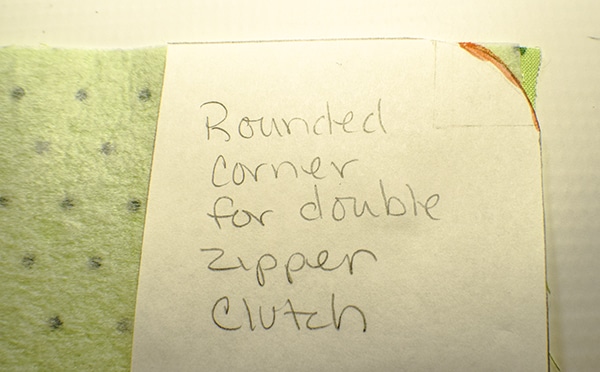 Rounded
corner
for double
zipper
clutch